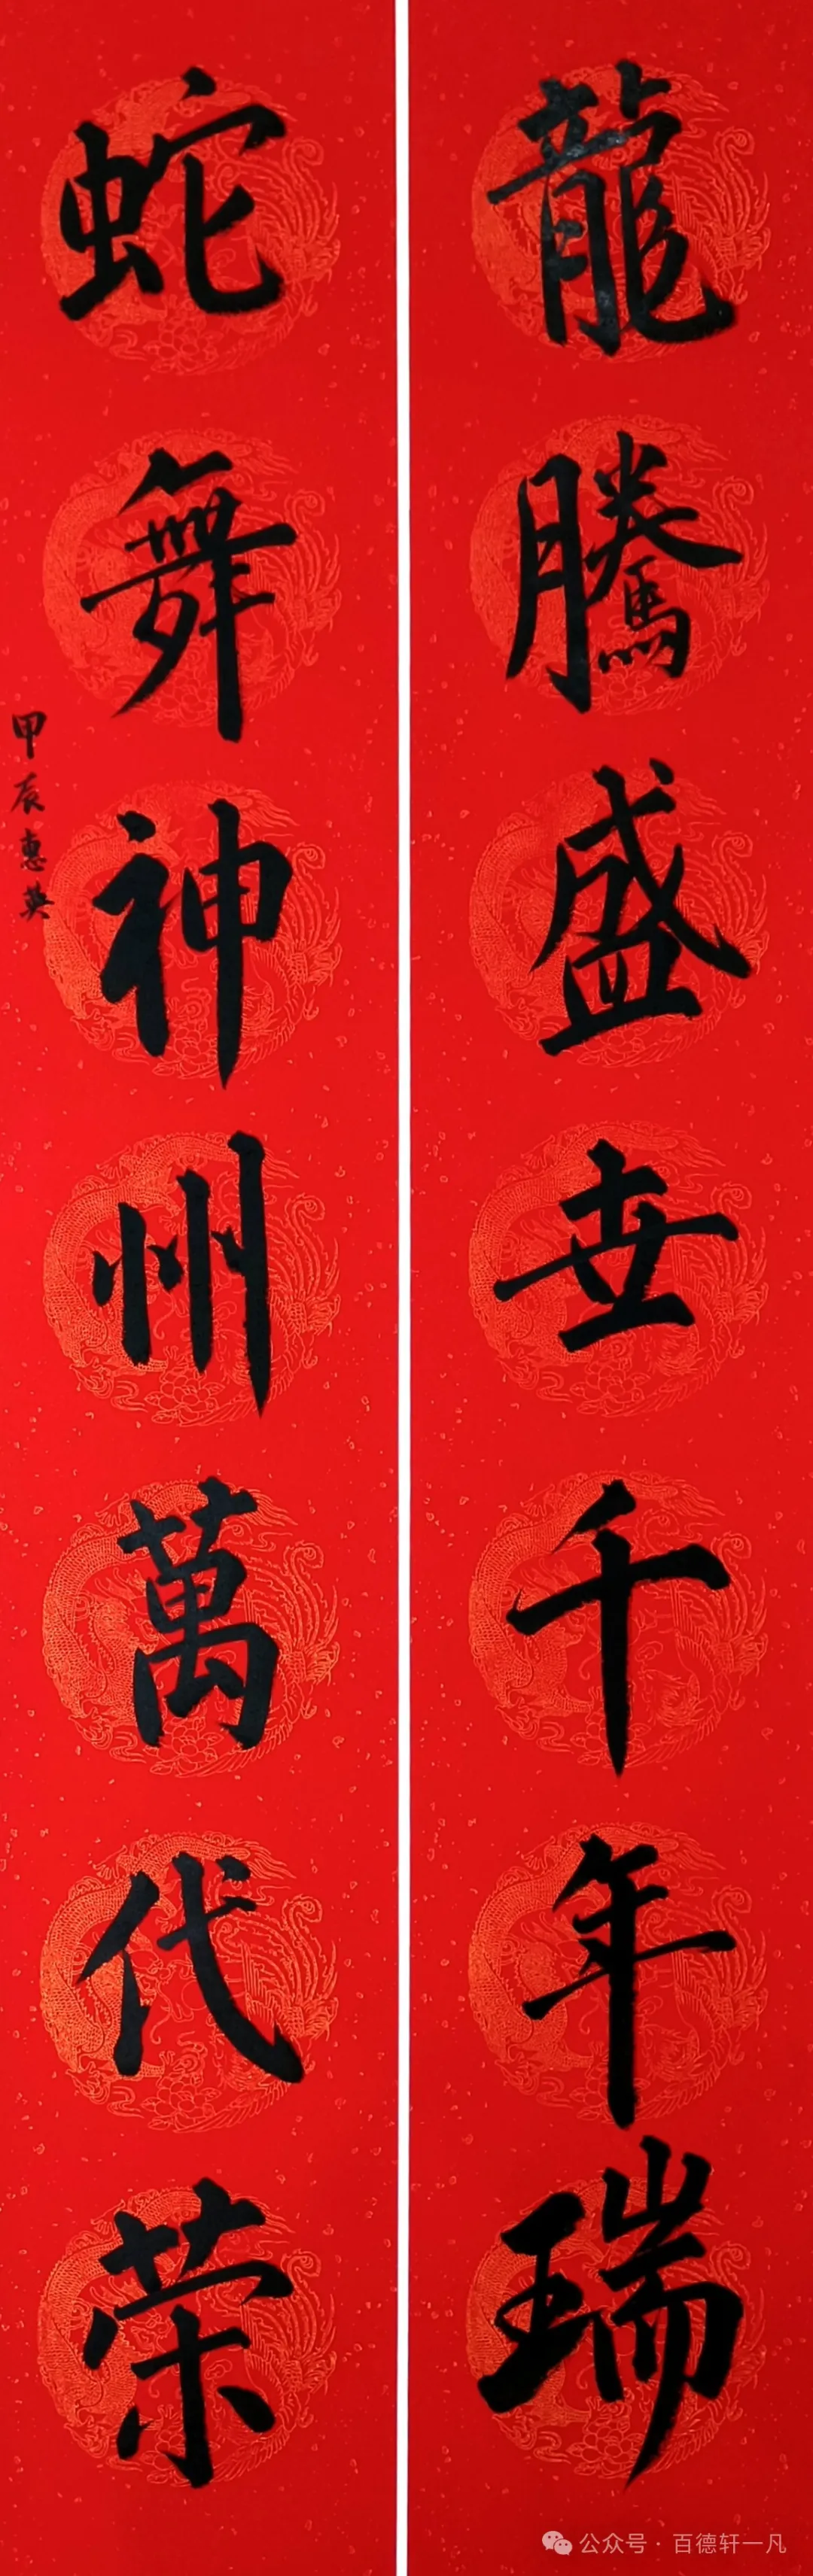 龍騰盛世千年瑞
蛇舞神州萬代荣
甲辰惠英
公众号·百德轩一凡